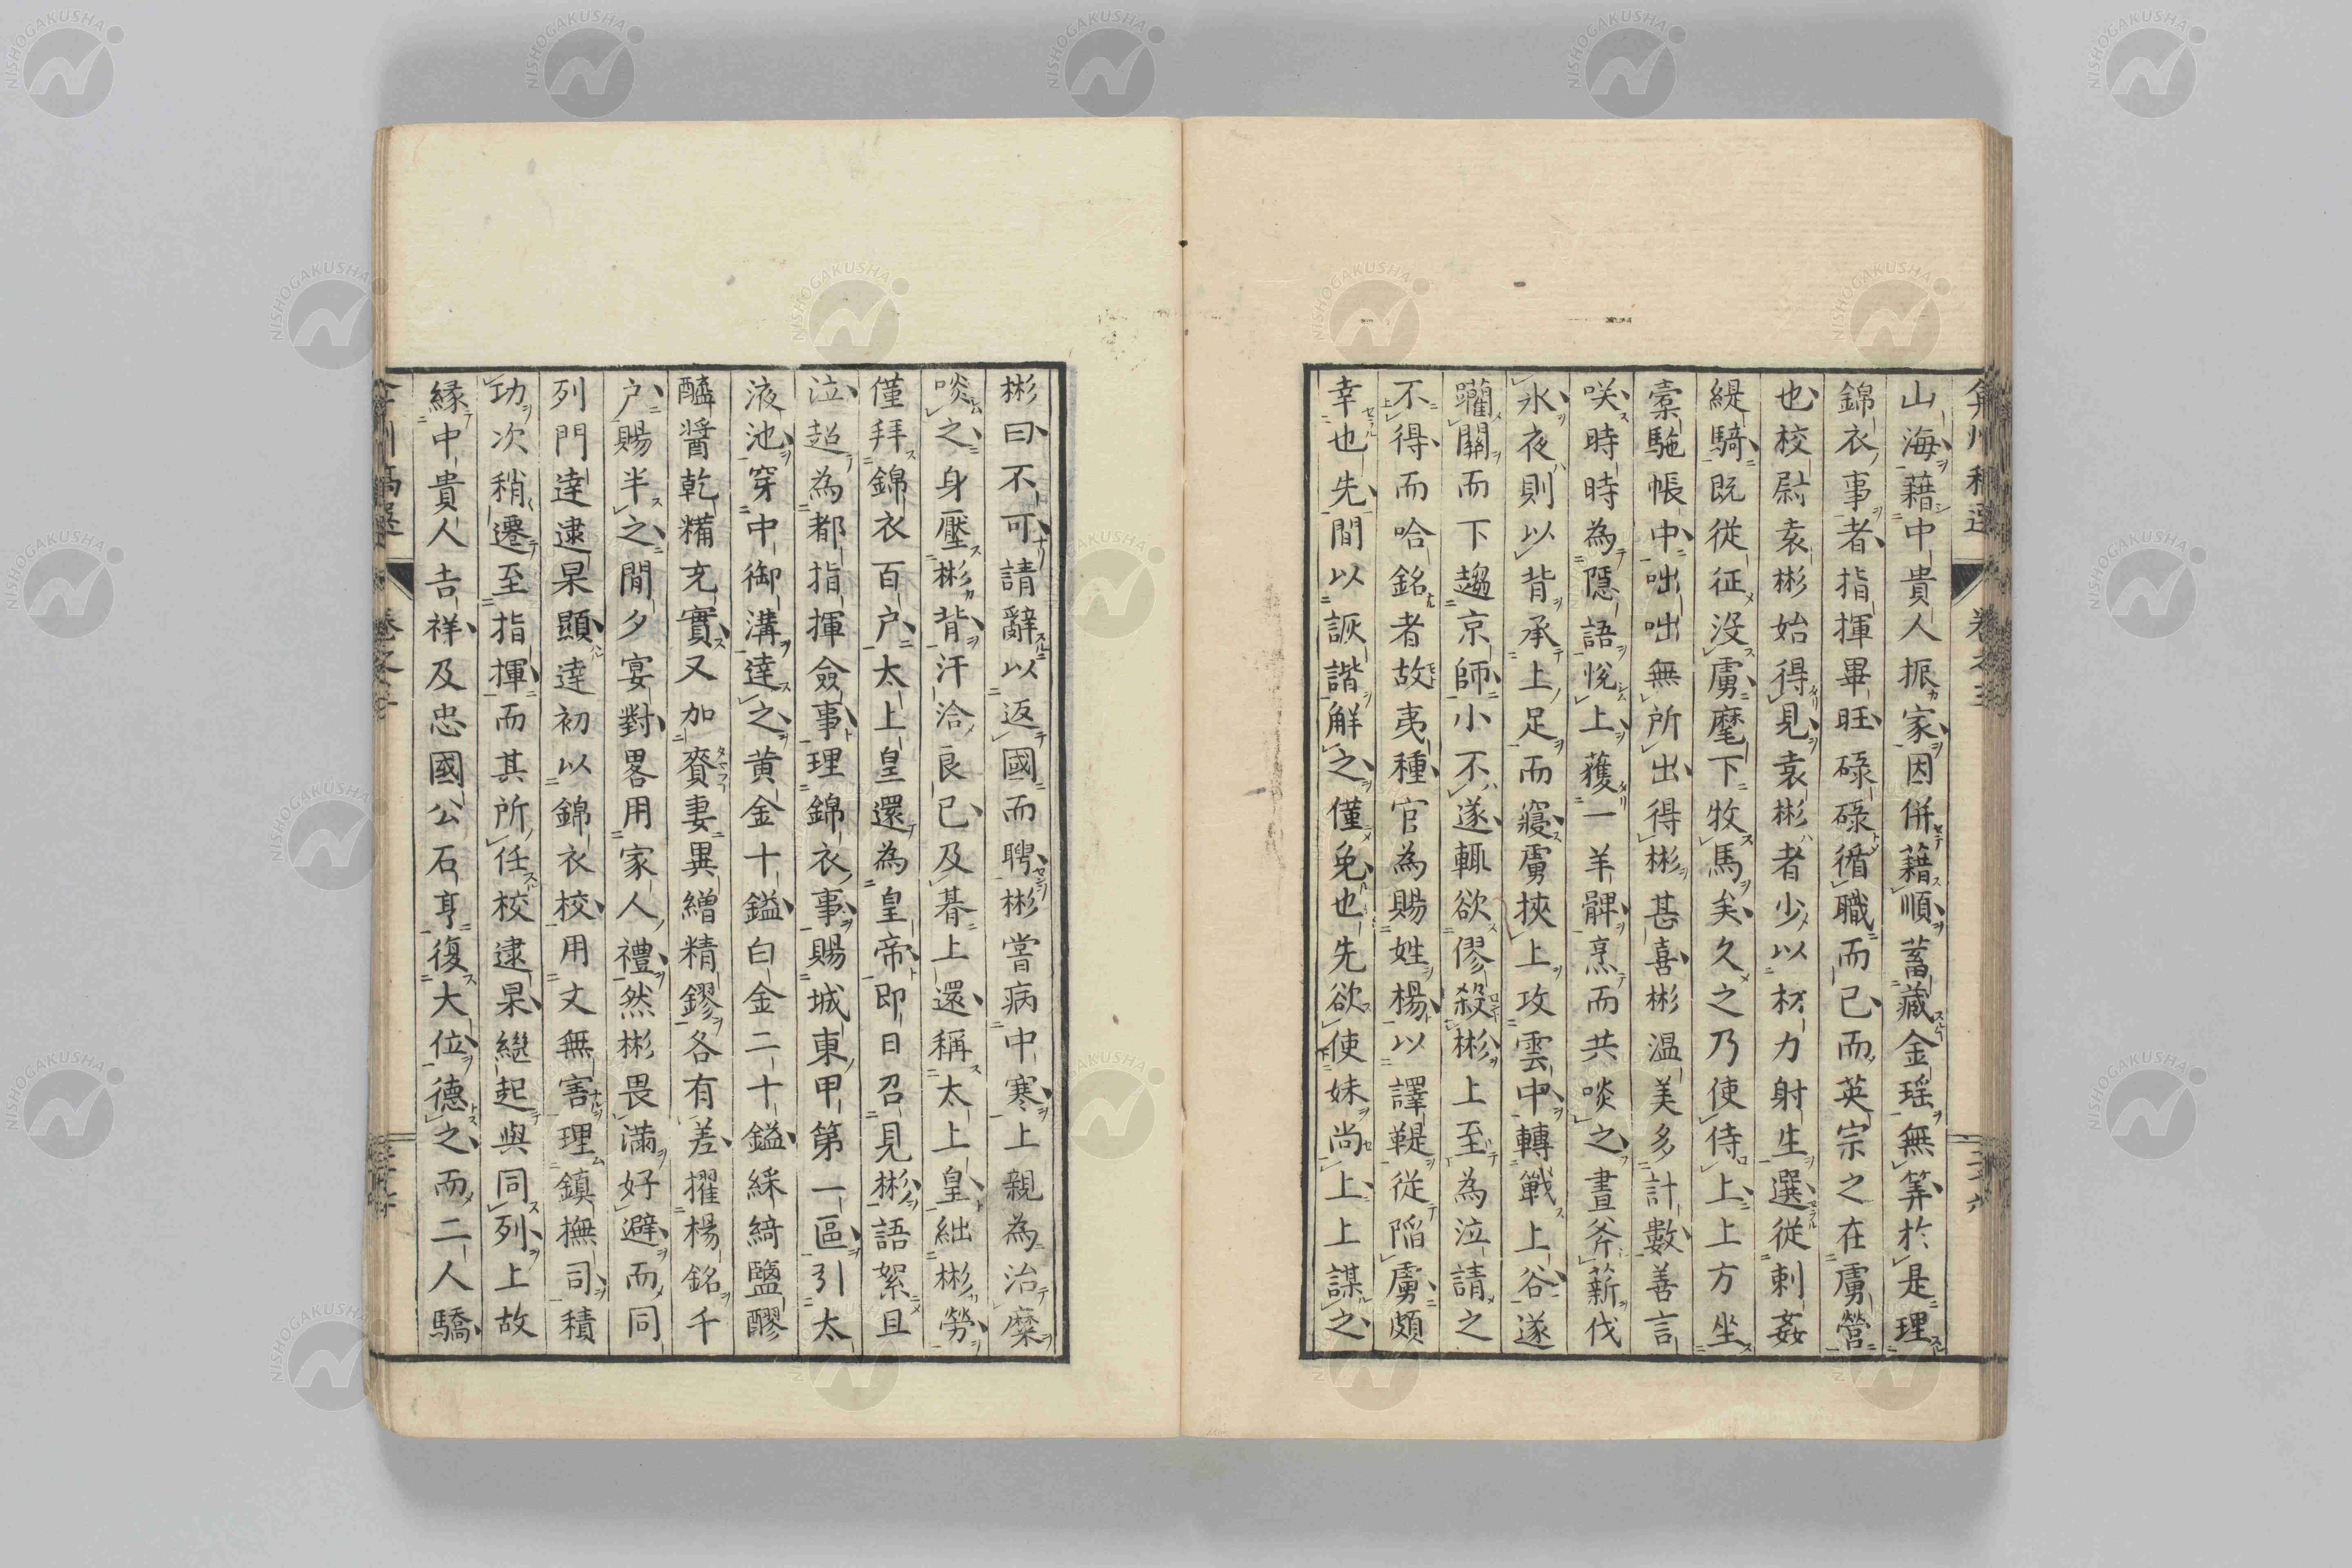 山海藉中貴人振家因併藉順蓄藏金瑶無筭於是理
錦衣事者指揮畢旺碌碌循職而已而英宗之在虜營
也校尉袁彬始得見袁彬者少以材力射生選從刺姦
緹騎既從征没虜麾下牧馬矣久之乃使侍上上方坐
橐駞帳中咄咄無所出得彬甚喜彬温美多計數善言
咲時時為隱語悅上獲一羊髀烹而共啖之晝斧薪伐
氷夜則以背承上足而寢虜挾上攻雲中轉戰上谷遂
躪關而下趨京師小不遂輒欲僇殺彬上至為泣請之
不得而哈銘者故夷種官為賜姓楊以譯鞮從陷虜頗
幸也先間以詼諧解之僅免也先欲使妹尚上上謀之
彬曰不可請辭以返國而聘彬嘗病中寒上親為治糜
啖之身壓彬背汗洽良已及暮上還稱太上皇絀彬勞
僅拜錦衣百户太上皇還為皇帝即日召見彬語絮且
泣超為都指揮僉事理錦衣事賜城東甲第一區引太
液池穿中御溝達之黄金十鎰白金二十鎰綵綺鹽醪
醯醬乾糒充實又加賚妻異繒精鏐各有差擢楊銘千
户賜半之閒夕宴對畧用家人禮然彬畏滿好避而同
列門達逮杲顯達初以錦衣校用文無害理鎮撫司積
功次稍遷至指揮而其所任校逮杲繼起與同列上故
緣中貴人吉祥及忠國公石亨復大位德之而二人驕
NISHOGAKUSHA